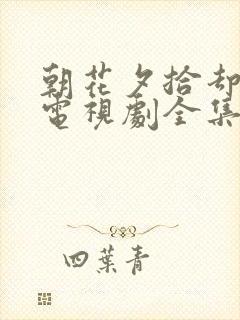 朝花夕拾却
電視劇全集
四葉青